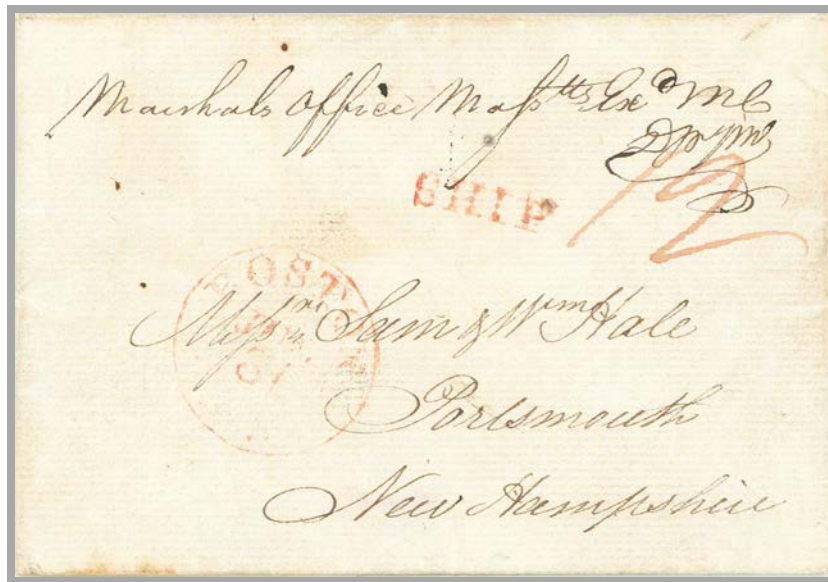 Marshals Office Mass^tts Ex^d M C
SHIP 12
BOSTON
Mess^rs Sam & W^m Hale
Portsmouth
New Hampshire